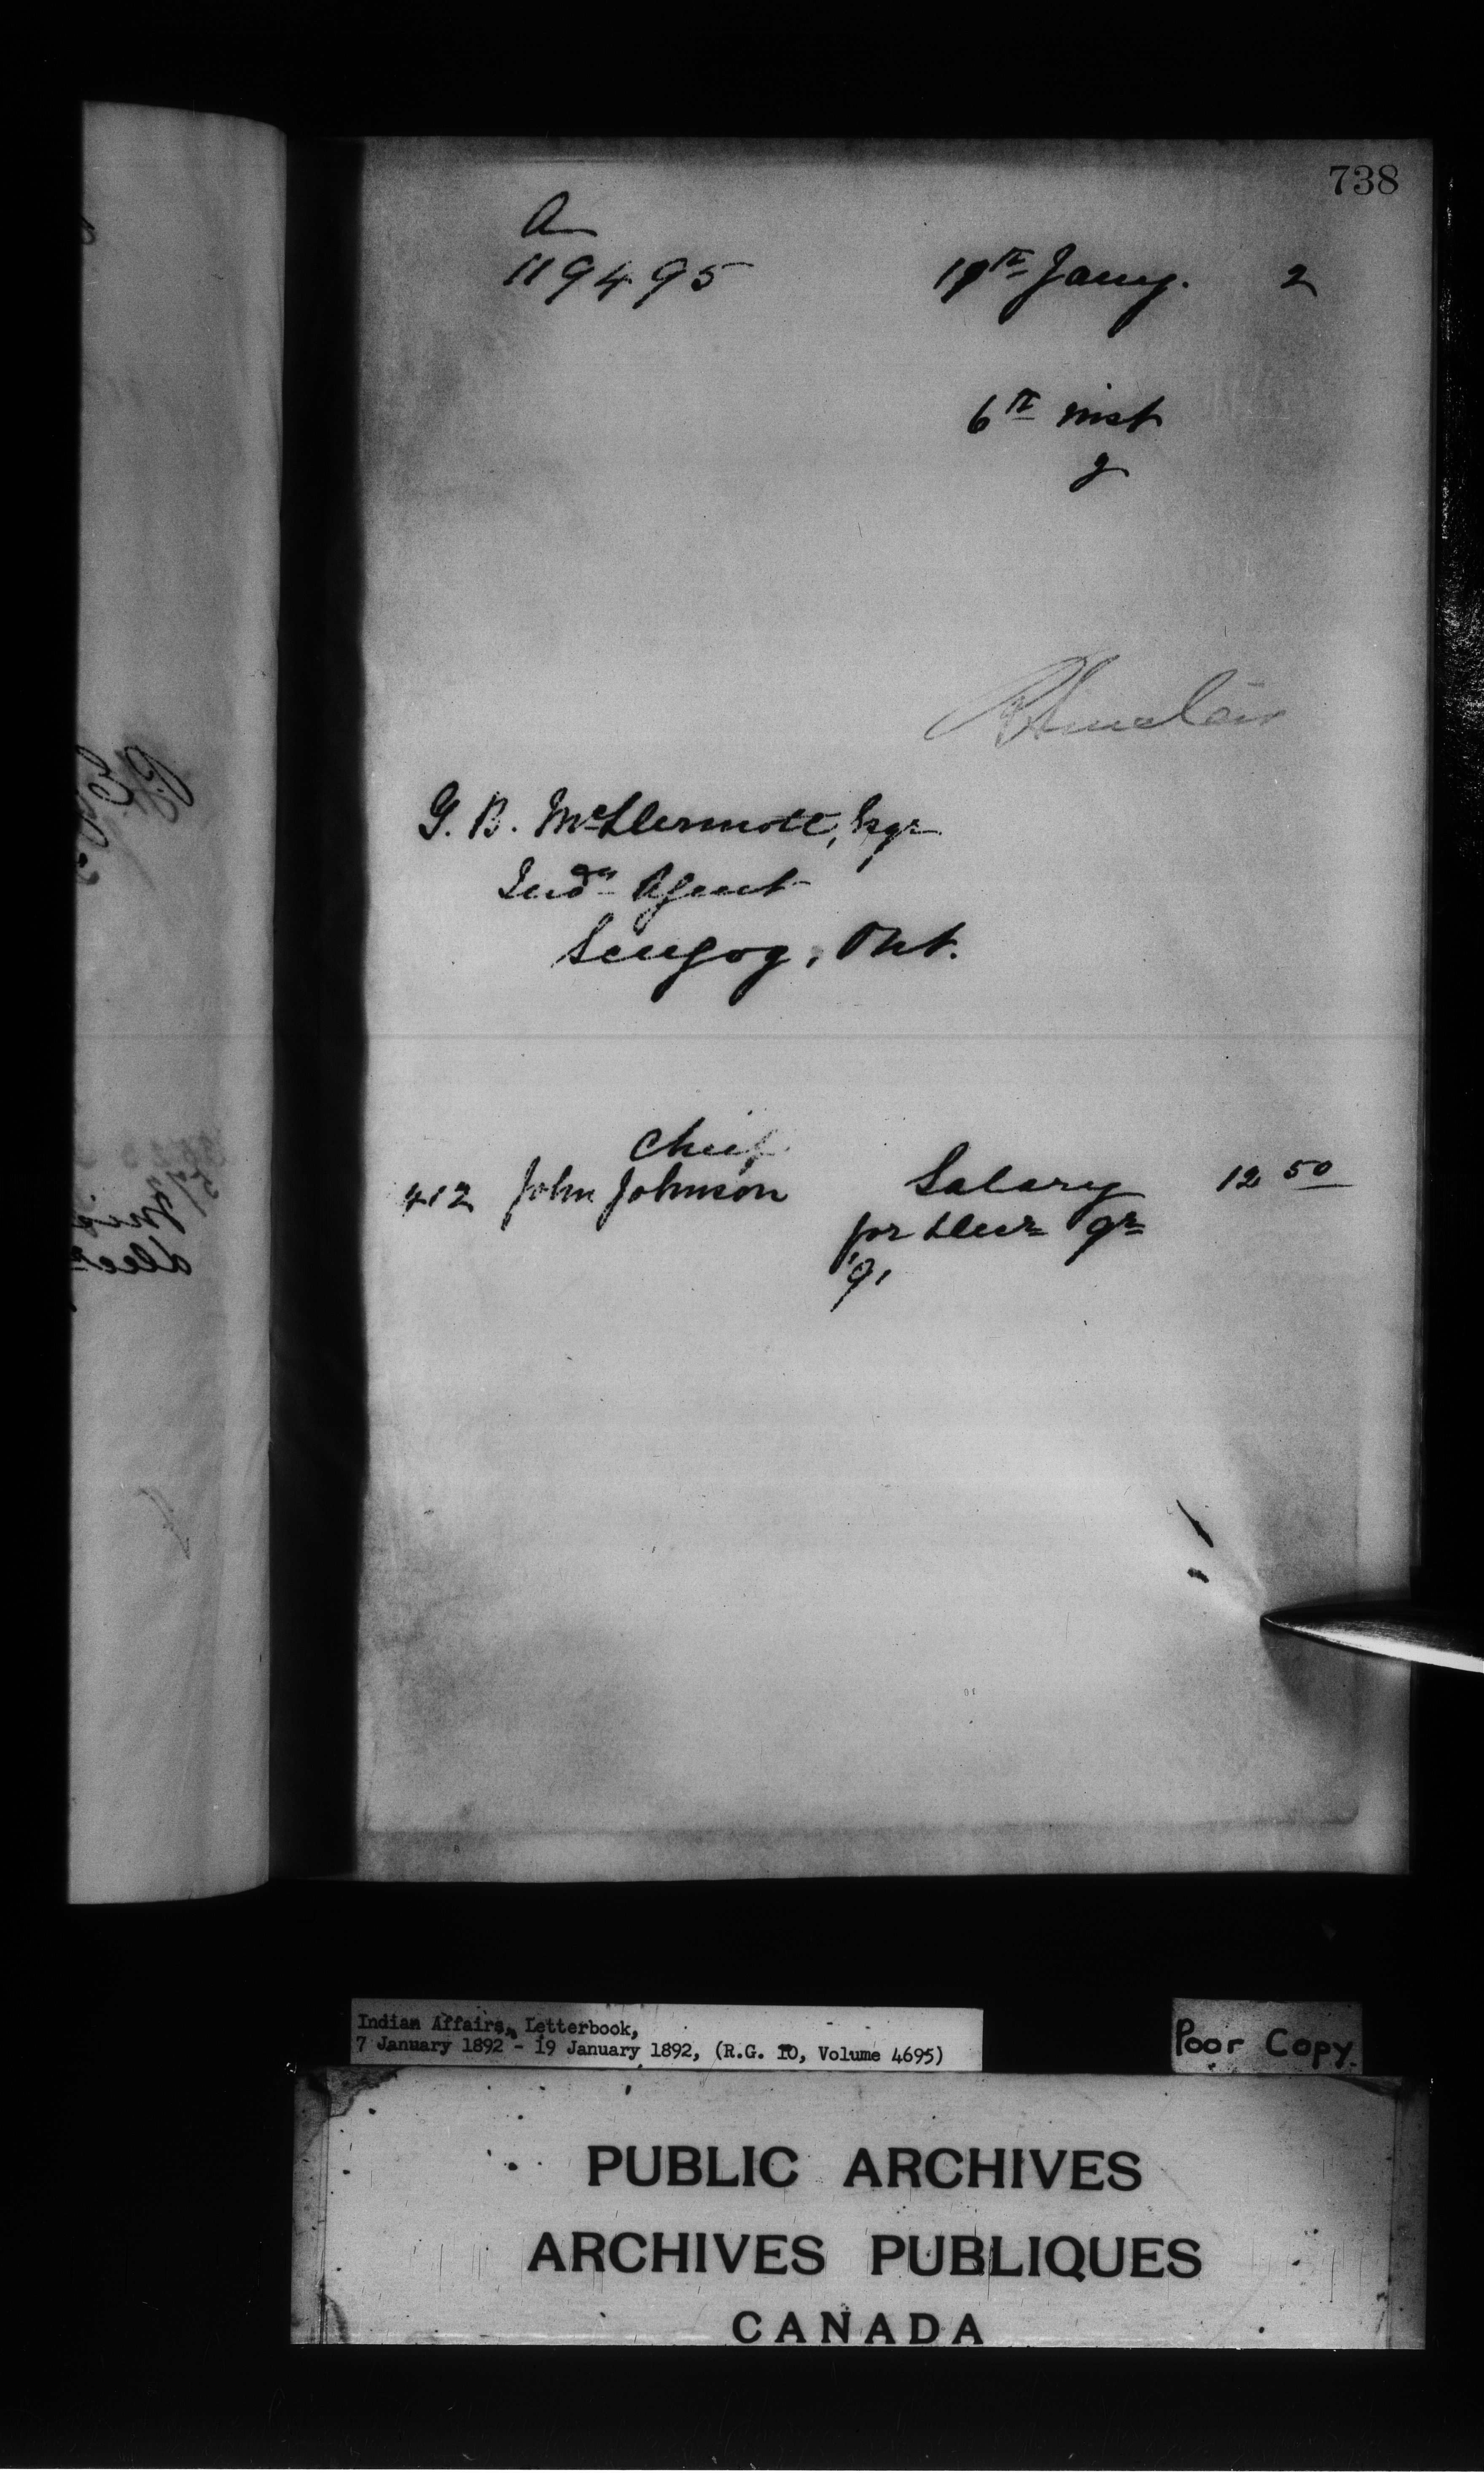 738
A
119495 19th Jany. 2
6th inst
G
R Sinclair
G. B. McDermott, Esqr
Indn Agent
Scugog, Ont.
Chief
412 John Johnson Salary 12 50
for Decr qr
'91
Indian Affairs, Letterbook,
7 January 1892 - 19 January 1892, (R.G. 10, Volume 4695)
Poor Copy.
PUBLIC ARCHIVES
ARCHIVES PUBLIQUES
CANADA